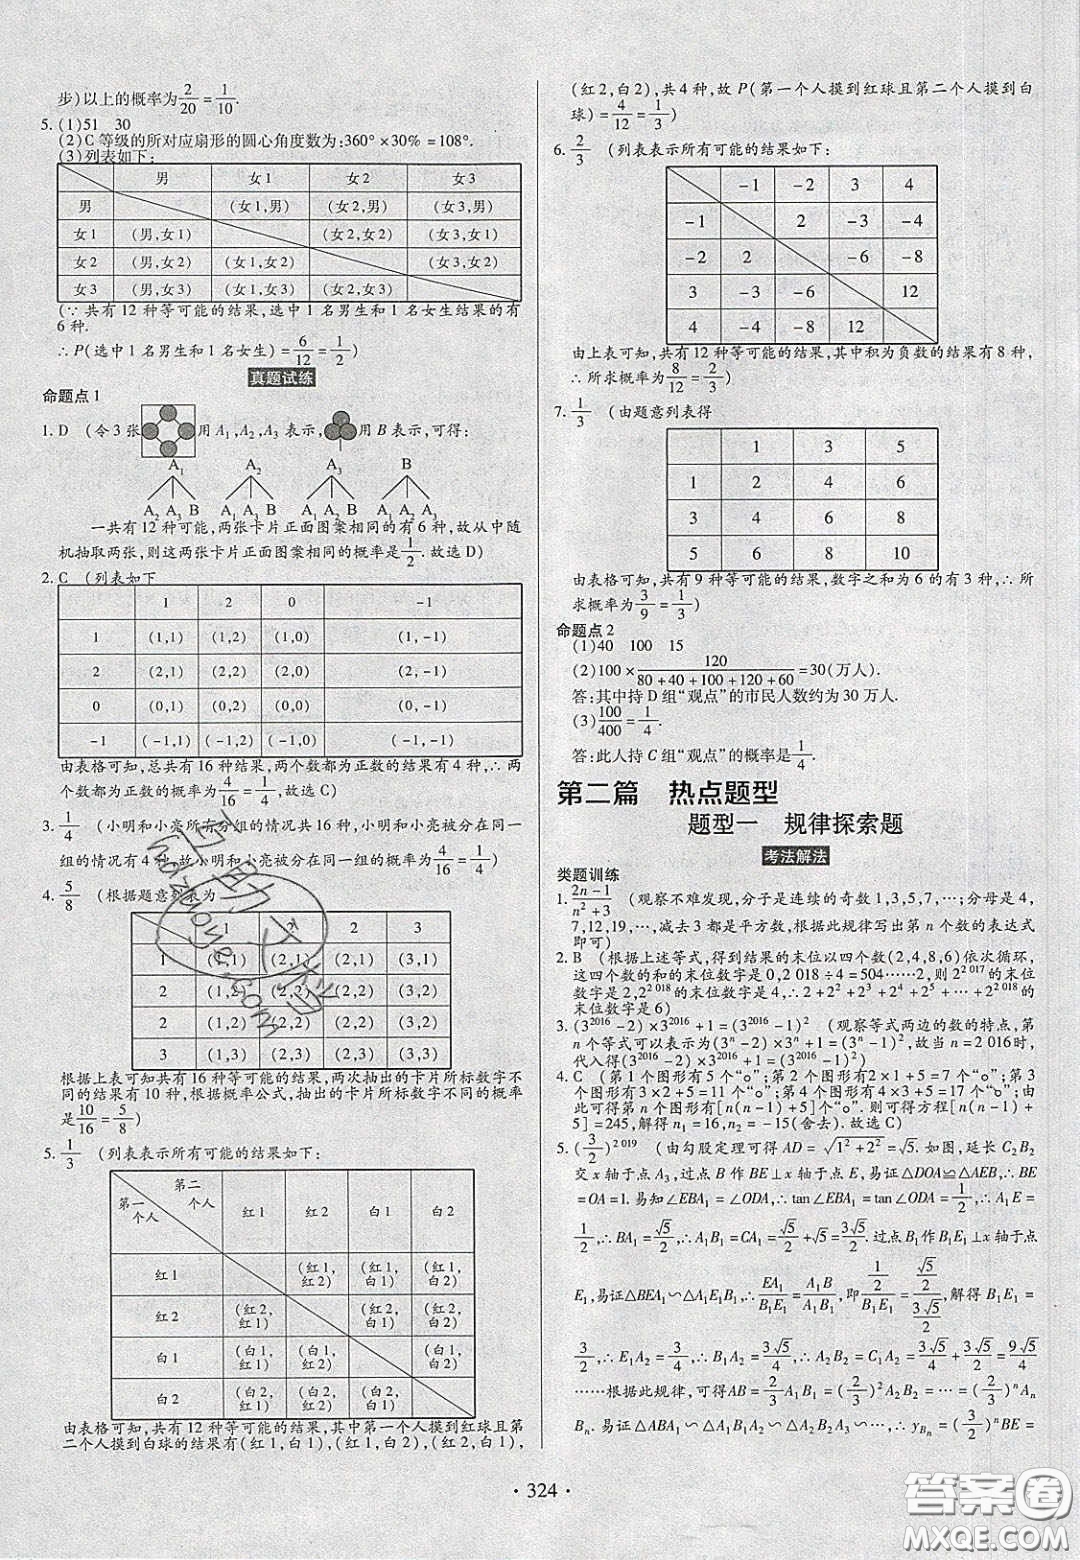 步)以上的概率为2/20=1/10.
5.(1)51 30
(2)C等级的所对应扇形的圆心角度数为:360°×30%=108°.
(3)列表如下:
男 女1 女2 女3
男 (女1,男) (女2,男) (女3,男)
女1 (男,女1) (女2,女2) (女3,女1)
女2 (男,女2) (女1,女2) (女3,女2)
女3 (男,女3) (女1,女3) (女2,女3)
(∵共有12种等可能的结果,选中1名男生和1名女生结果的有
6种.
∴P(选中1名男生和1名女生)=6/12=1/2)
真题试练
命题点1
1.D (令3张 用A₁,A₂,A₃表示, 用B表示,可得:
A₁ A₂ A₃ B
A₂ A₃ B A₁ A₃ B A₁ A₂ B A₁ A₂ A₃
一共有12种可能,两张卡片正面图案相同的有6种,故从中随
机抽取两张,则这两张卡片正面图案相同的概率是1/2.故选D)
2.C (列表如下
1 2 0 -1
1 (1,1) (1,2) (1,0) (1,-1)
2 (2,1) (2,2) (2,0) (2,-1)
0 (0,1) (0,2) (0,0) (0,-1)
-1 (-1,1) (-1,2) (-1,0) (-1,-1)
由表格可知,总共有16种结果,两个数都为正数的结果有4种,∴两
个数都为正数的概率为4/16=1/4,故选C)
3.1/4 (小明和小亮所有分组的情况共16种,小明和小亮在同一
组的情况有4种,故小明和小亮在同一组的概率为4/16=1/4)
4.5/8 (根据题意列表为
1 2 3
1 (1,1) (2,1) (2,1) (3,1)
2 (1,2) (2,2) (2,2) (3,2)
2 (1,2) (2,2) (2,2) (3,2)
3 (1,3) (2,3) (2,3) (3,3)
根据上表可知共有16种等可能的结果,两次抽出的卡片所标数字不
同的结果有10种,根据概率公式,抽出的卡片所标数字不同的概率
是10/16=5/8)
5.1/3 (列表表示所有可能的结果如下:
第二个人 第一个人 红1 红2 白1 白2
红1 (红1,红2) (红1,白1) (红1,白2)
红2 (红2,红1) (红2,白1) (红2,白2)
白1 (白1,红1) (白1,红2) (白1,白2)
白2 (白2,红1) (白2,红2) (白2,白1)
由表格可知,共有12种等可能的结果,其中第一个人摸到红球且第
二个人摸到白球的结果有(红1,白1),(红1,白2),(红2,白1),
(红2,白2),共4种,故P(第一个人摸到红球且第二个人摸到白
球)=4/12=1/3)
6.2/3 (列表表示所有可能的结果如下:
-1 -2 3 4
-1 2 -3 -4
-2 2 -6 -8
3 -3 -6 12
4 -4 -8 12
由上表可知,共有12种等可能的结果,其中积为负数的结果有8种,
∴所求概率为8/12=2/3)
7.1/3 (由题意列表得
1 3 5
1 2 4 6
3 4 6 8
5 6 8 10
由表格可知,共有9种等可能的结果,数字之和为6的有3种,∴所
求概率为3/9=1/3)
命题点2
(1)40 100 15
(2)100×120/(80+40+100+120+60)=30(万人).
答:其中持D组“观点”的市民人数约为30万人.
(3)100/400=1/4.
答:此人持C组“观点”的概率是1/4.
第二篇 热点题型
题型一 规律探索题
考法解法
类题训练
1.(2n-1)/(n²+3) (观察不难发现,分子是连续的奇数1,3,5,7,…;分母是4,
7,12,19,…,减去3都是平方数,根据此规律写出第n个数的表达式
即可)
2.B (根据上述等式,得到结果的末位以四个数(2,4,8,6)依次循环,
这四个数的和的末位数字是0,2 018÷4=504……2,则2^2 017的末位
数字是2,2^2 018的末位数字是4,∴2+2²+2³+2⁴+2⁵+…+2^2 018的
末位数字是6)
3.(3^2016-2)×3^2016+1=(3^2016-1)² (观察等式两边的数的特点,第
n个等式可以表示为(3ⁿ-2)×3ⁿ+1=(3ⁿ-1)²,故当n=2 016时,
代入得(3^2016-2)×3^2016+1=(3^2016-1)²)
4.C (第1个图形有5个“o”;第2个图形有2×1+5=7个“o”;第3
个图形有3×2+5=11个“o”;第4个图形有4×3+5=17个“o”;由
此可得第n个图形有[n(n-1)+5]个“o”.则可得方程[n(n-1)+
5]=245,解得n₁=16,n₂=-15(舍去).故选C)
5.(3/2)^2 019 (由勾股定理可得AD=√(1²+2²)=√5.如图,延长C₂B₂
交x轴于点A₃,过点B作BE⊥x轴于点E,易证△DOA≌△AEB,∴BE
=OA=1.易知∠EBA₁=∠ODA,∴tan∠EBA₁=tan∠ODA=1/2,∴A₁E=
1/2,∴BA₁=√5/2,∴A₁B₁=CA₁=√5/2+√5=3√5/2.过点B₁作B₁E₁⊥x轴于点
E₁,易证△BEA₁∽△A₁E₁B₁,∴EA₁/B₁E₁=A₁B/A₁B₁,即(1/2)/B₁E₁=(√5/2)/(3√5/2),解得B₁E₁=
3/2,∴E₁A₂=3/4,∴B₁A₂=3√5/4,∴A₂B₂=C₁A₂=3√5/4+3√5/2=9√5/4
……根据此规律,可得AB=2/3A₁B₁=(2/3)²A₂B₂=…=(2/3)ⁿAₙ
Bₙ.易证△ABA₁∽△A₁B₁A₂∽△A₂B₂A₃∽…,∴y_Bₙ=(3/2)ⁿBE=
·324·
答案圈
MXQE.COM